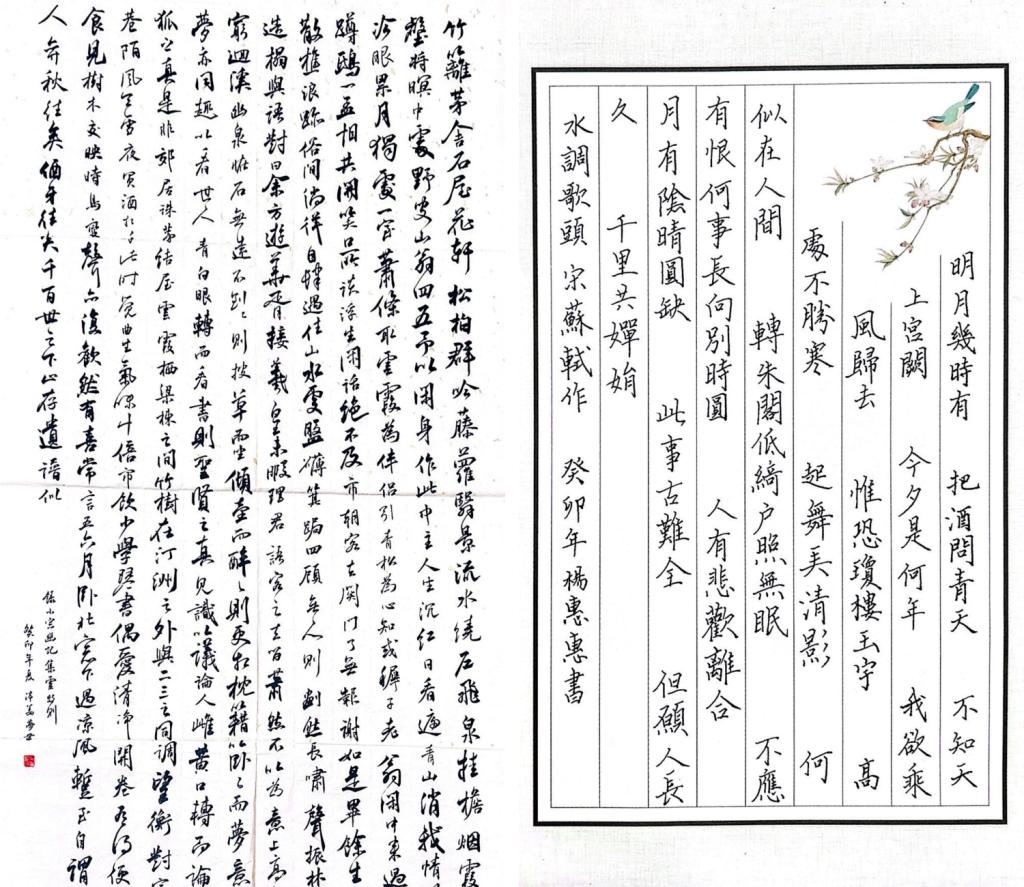 竹籬茅舍石屋花軒松柏群吟藤蘿翳景流水繞户飛泉挂檐烟霞
壑將暝中處野叟山翁四五予以閑身作此中主人生沉紅日看遍青山消我情
冷眼累月獨處一室蕭條取雲霞為伴侶引青松為心知或稚子老翁閑中來過
蹲鴟一盂相共開笑口所談浮生閑話絕不及市朝客去関門了無報謝如是畢餘生
散樵浪跡俗間徜徉自肆遇佳山水處盤礴箕踞四顧無人則劃然長嘯聲振林
造榻與語對曰余方遊華胥接羲皇未暇理君語客之去留蕭然不以為意上高
窮迴溪幽泉怪石無遠不到々則披草而坐傾壺而醉々則更相枕籍以卧々而夢意
夢亦同趣以看世人青白眼轉而看書則聖賢之真見識以議論人雌黃口轉而論
狐之真是非郊居誅茅結屋雲霞栖梁棟之間竹樹在汀洲之外與二三之同調望衡對宇
巷陌風天雪夜買酒相呼此時覺曲生氣味十倍市飲少學琴書偶愛清淨開卷有得便
食見樹木交映時鳥變聲亦復歡然有喜常言五六月卧北窗下遇涼風暫至自謂
人弃秋佳矣酒身佳矣千百世之下止存遺譜似
錄小窗幽記集靈
癸卯年夏
明月幾時有 把酒問青天 不知天
上宮闕 今夕是何年 我欲乘
風歸去 惟恐瓊樓玉宇 高
處不勝寒 起舞弄清影 何
似在人間 轉朱閣低綺户照無眠 不應
有恨何事長向別時圓 人有悲歡離合
月有陰晴圓缺 此事古難全 但願人長
久 千里共嬋娟
水調歌頭 宋蘇軾作 癸卯年楊惠惠書